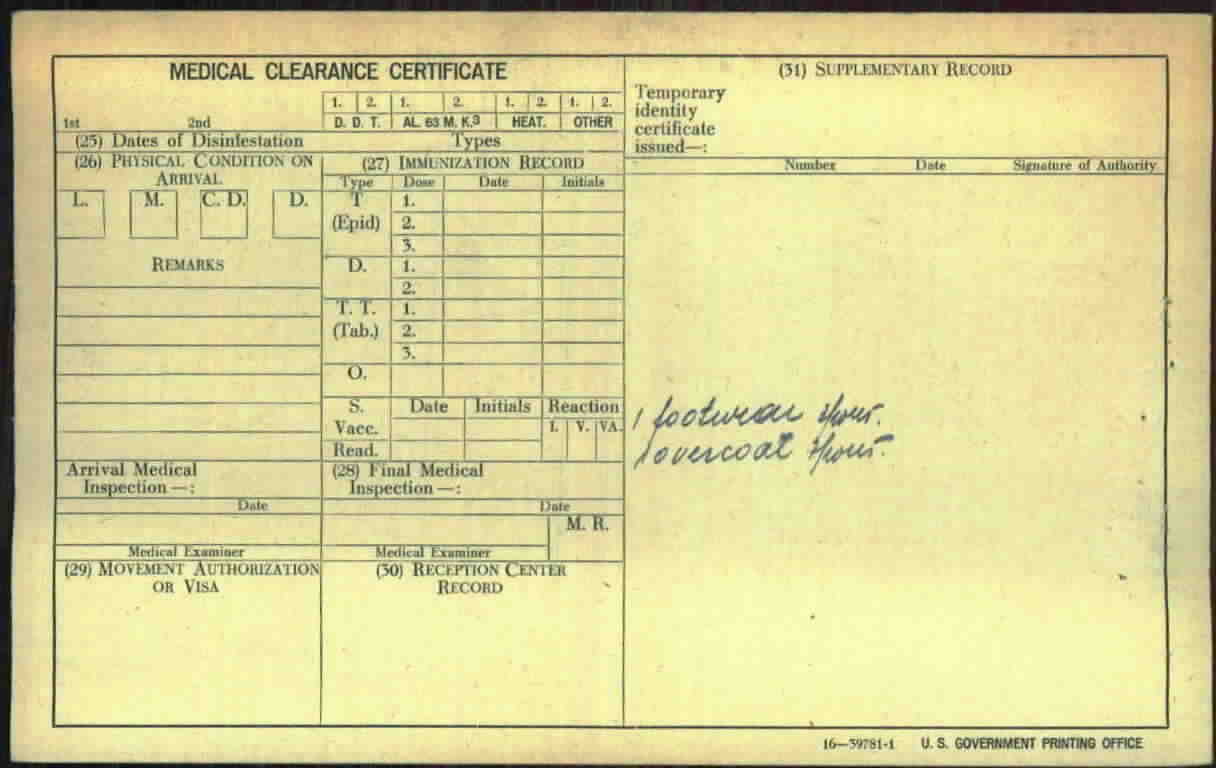 MEDICAL CLEARANCE CERTIFICATE
1. 2. 1. 2. 1. 2. 1. 2.
1st 2nd D. D. T. AL. 63 M. K.3 HEAT. OTHER
(25) Dates of Disinfestation Types
(26) PHYSICAL CONDITION ON
ARRIVAL
L. M. C. D. D.
REMARKS
(27) IMMUNIZATION RECORD
Type Dose Date Initials
T 1.
(Epid) 2.
3.
D. 1.
2.
T. T. 1.
(Tab.) 2.
3.
O.
S. Date Initials Reaction
Vacc. I. V. VA.
Read.
Arrival Medical
Inspection—:
Date
Medical Examiner
(28) Final Medical
Inspection—:
Date
M. R.
Medical Examiner
(29) MOVEMENT AUTHORIZATION
OR VISA
(30) RECEPTION CENTER
RECORD
(31) SUPPLEMENTARY RECORD
Temporary
identity
certificate
issued—:
Number Date Signature of Authority
1 footwear
1 overcoat
16—39781-1 U. S. GOVERNMENT PRINTING OFFICE